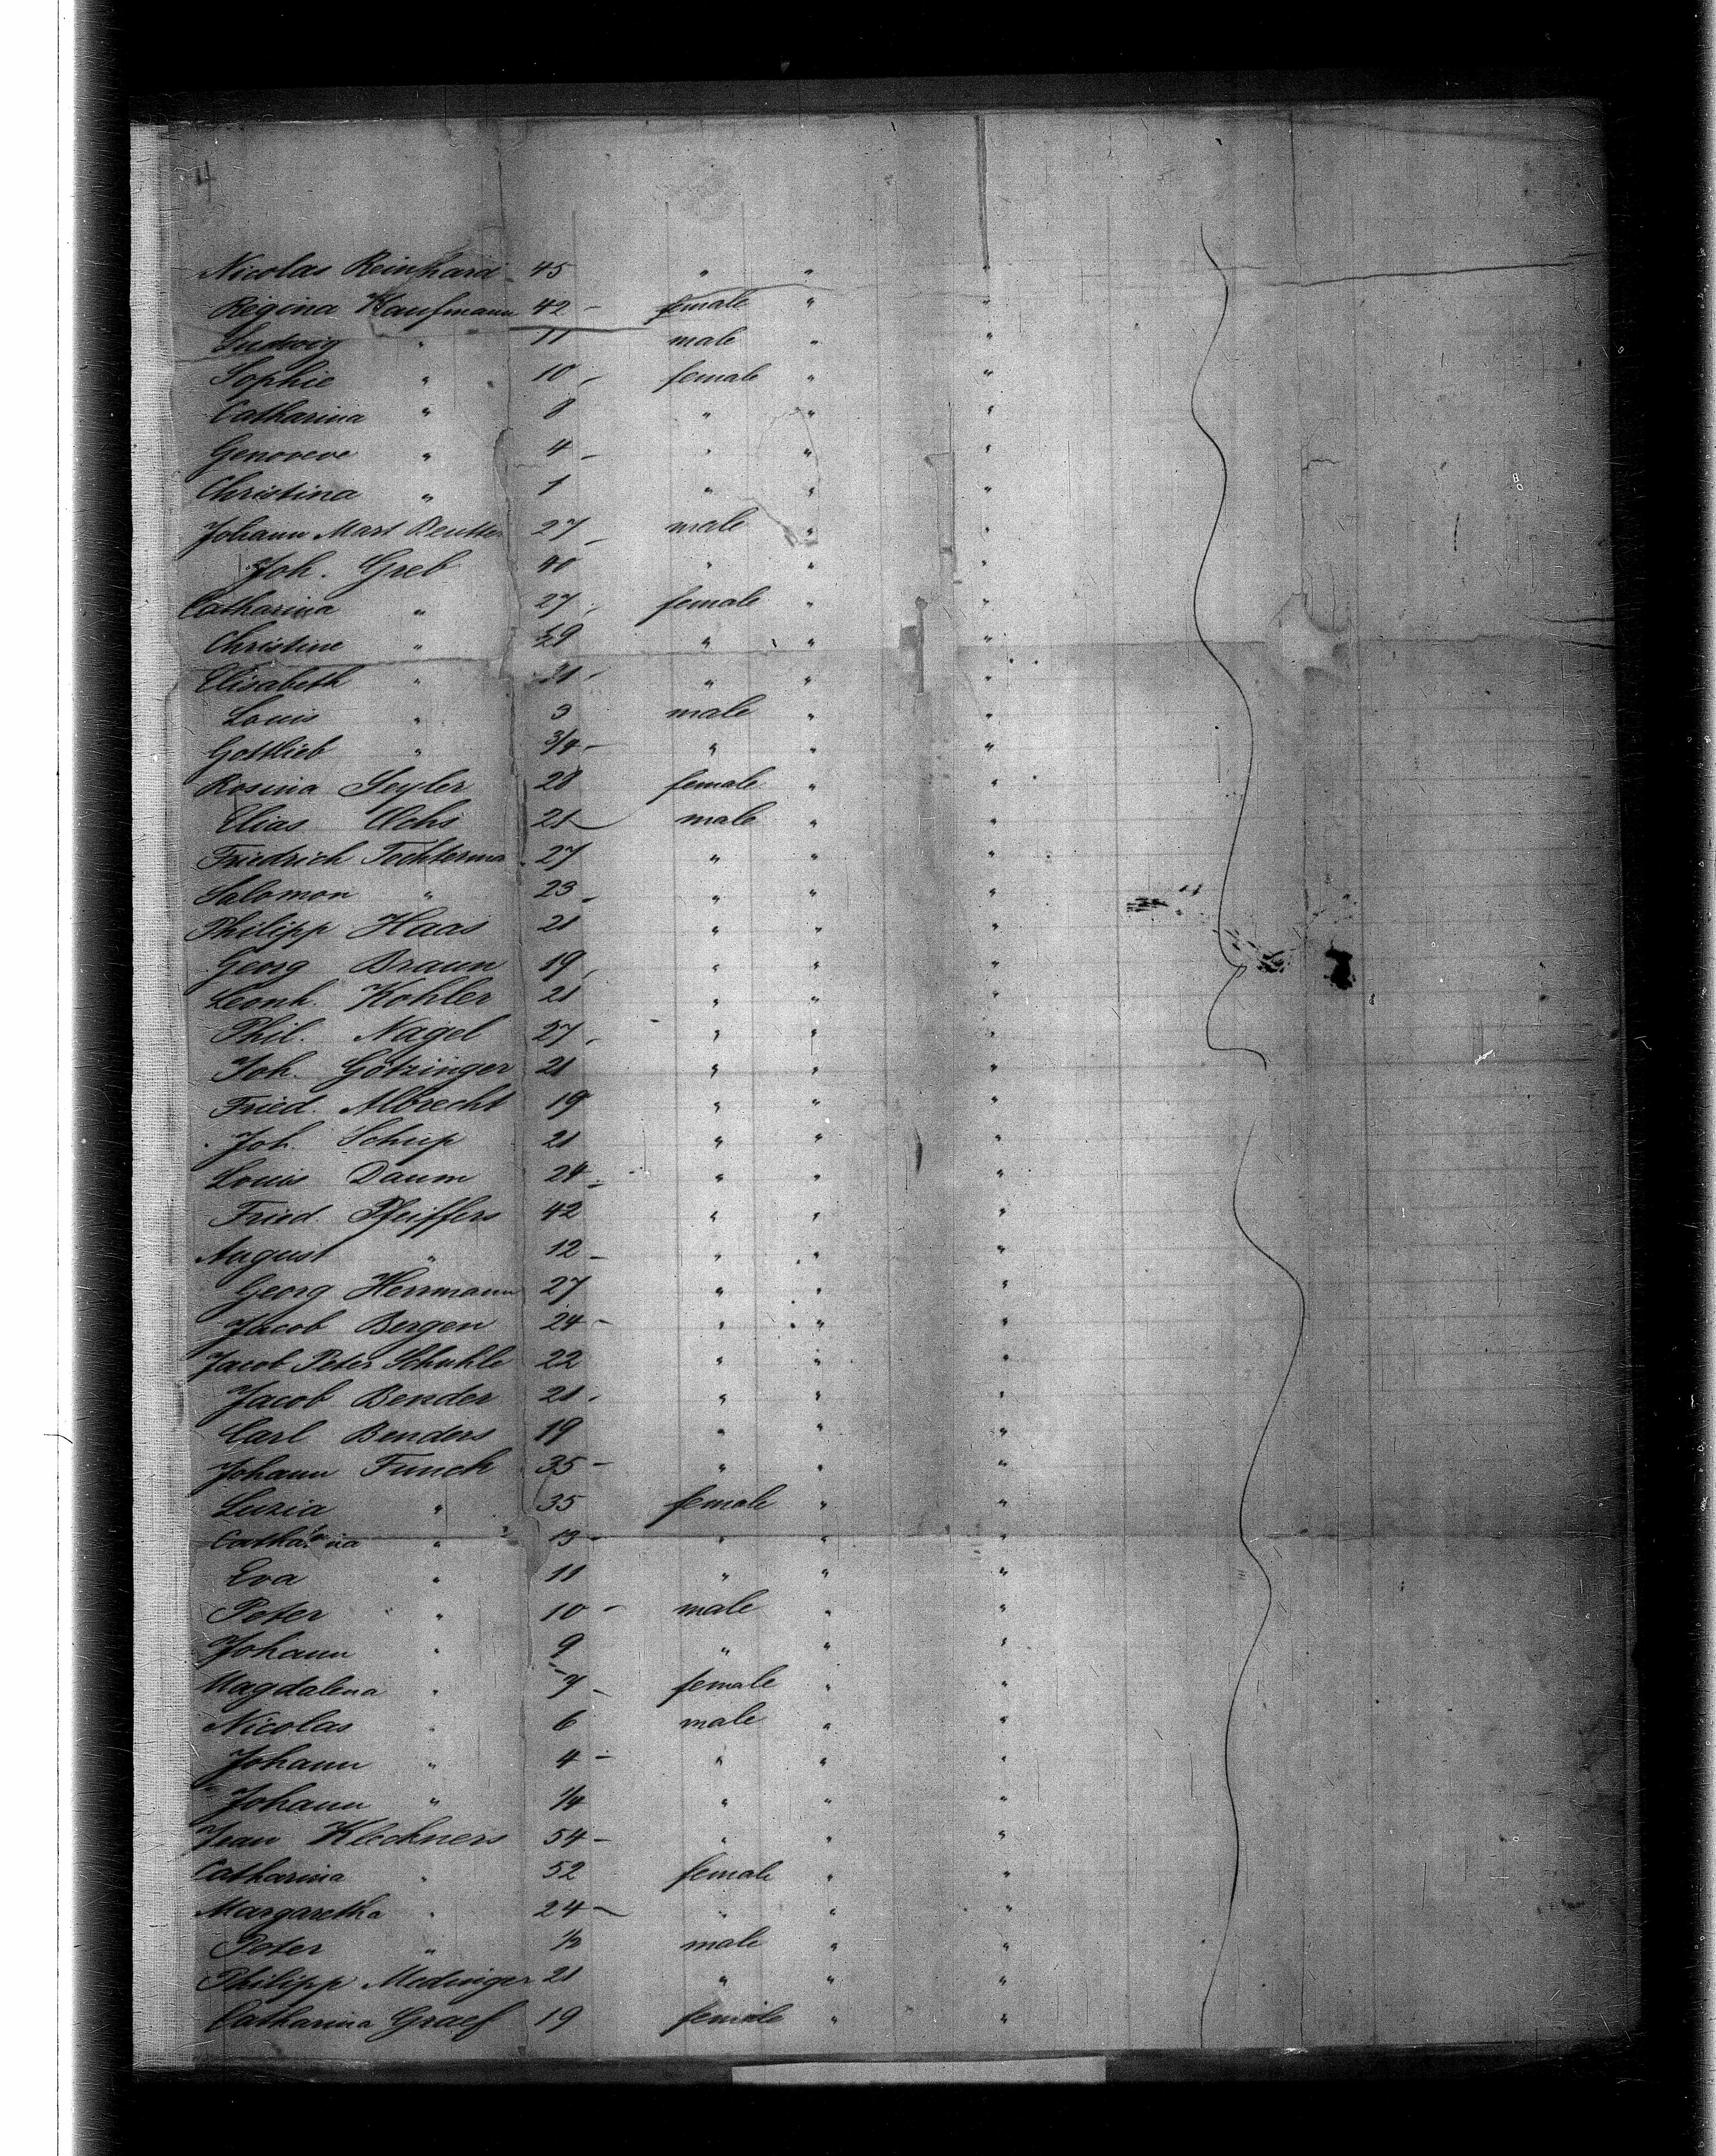 4
Nicolas Reinhard 45 " " "
Regina Kaufmann 42 - female " "
Ludwig " 11 male " "
Sophie " 10 - female " "
Catharina " 8 " " "
Genoveve " 4 - " " "
Christina " 1 " " "
Johann Mart Beutter 27 - male " "
Joh. Greb 40 " " "
Catharina " 27 - female " "
Christine " 29 " " "
Elisabeth " 21 - " " "
Louis " 3 male " "
Gottlieb " 3/4 - " " "
Rosina Seyler 28 female " "
Elias Ochs 21 - male " "
Friedrich Tochterma 27 " " "
Salomon " 23 - " " "
Philipp Haas 21 " " "
Georg Braun 19 - " " "
Leonh. Kohler 21 " " "
Phil. Nagel 27 - " " "
Joh. Götzinger 21 " " "
Fried. Albrecht 19 " " "
Joh. Schup 21 " " "
Louis Daum 24 - " " "
Fried. Pfeiffers 42 " " "
August " 12 - " " "
Georg Herrmann 27 " " "
Jacob Bergen 24 - " " "
Jacob Peter Schuhle 22 " " "
Jacob Bender 21 - " " "
Carl Benders 19 " " "
Johann Funck 35 - " " "
Luzia " 35 female " "
Catharina " 13 - " " "
Eva " 11 " " "
Peter " 10 - male " "
Johann " 9 " " "
Magdalena " 7 - female " "
Nicolas " 6 male " "
Johann " 4 - " " "
Johann " 1/4 " " "
Jean Kleckners 54 - " " "
Catharina " 52 female " "
Margaretha " 24 - " " "
Peter " 1/2 male " "
Philipp Medinger 21 " " "
Catharina Graef 19 female " "